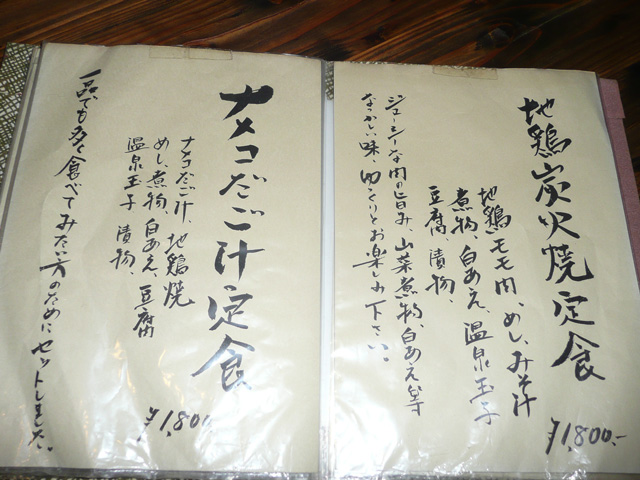 地鶏炭火焼定食
地鶏モモ肉、めし、みそ汁
煮物、白あえ、温泉玉子
豆腐、漬物、
¥1,800.-
ジューシーな肉の旨み、山菜煮物、白あえ等
なつかしい味、ゆっくりとお楽しみ下さい。
ナメコだご汁定食
ナメコだご汁、地鶏焼
めし、煮物、白あえ、豆腐
温泉玉子、漬物、
¥1,800.-
一品でも多く食べてみたい方のためにセットしました。